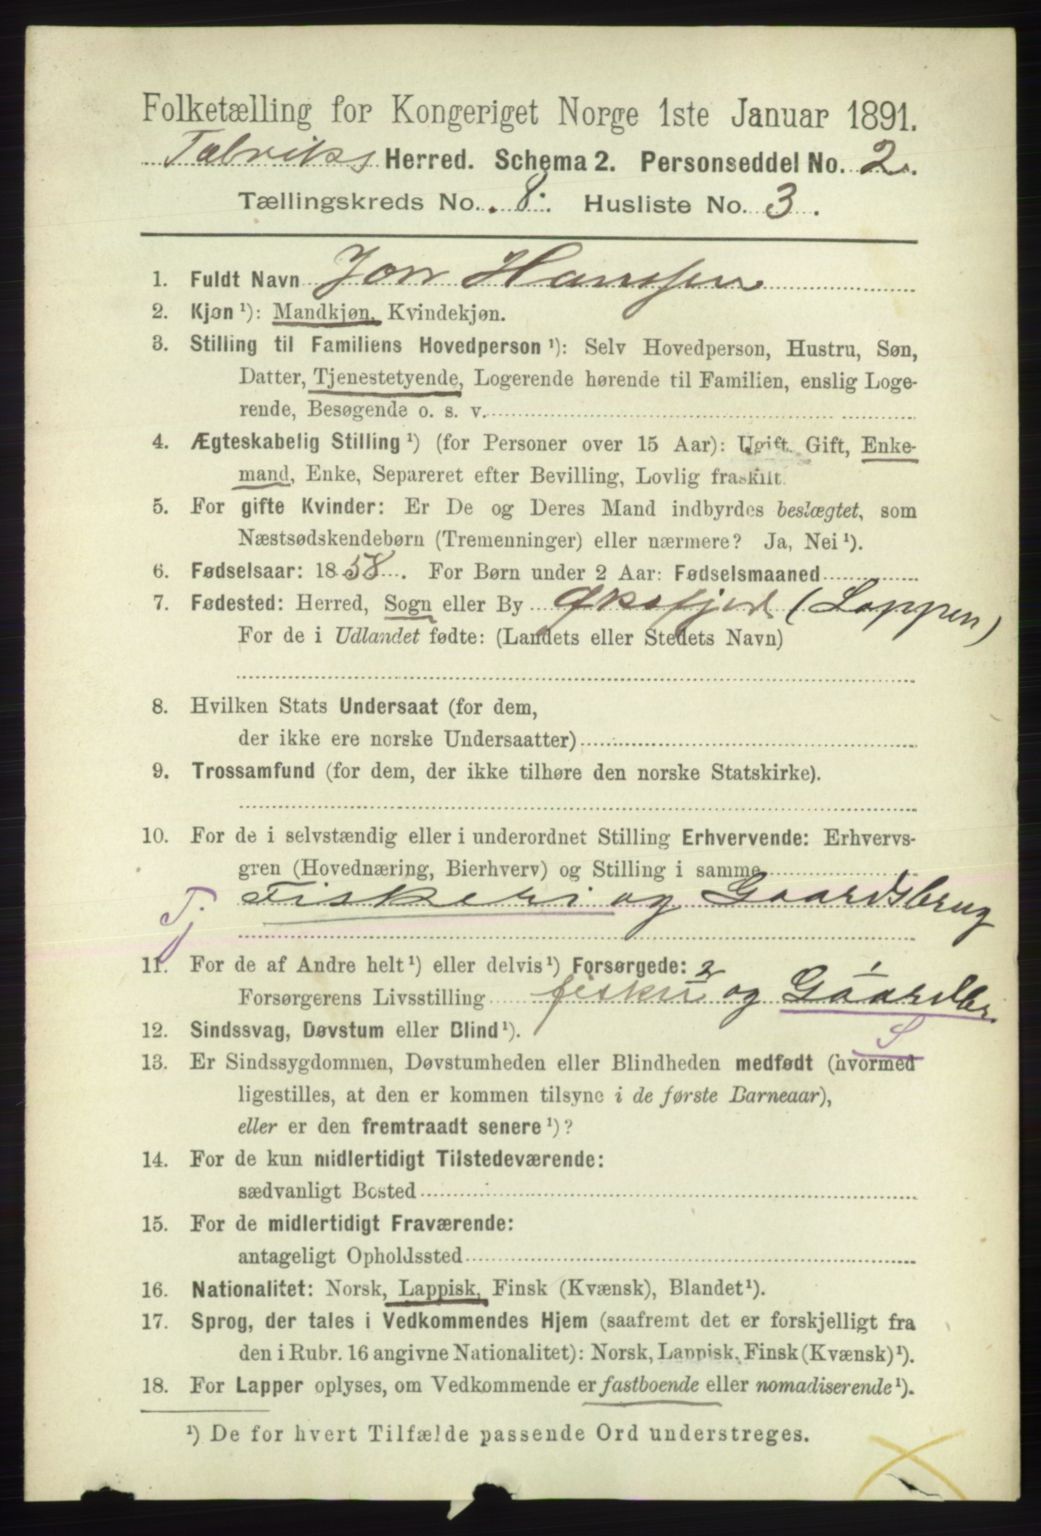 Folketælling for Kongeriget Norge 1ste Januar 1891.
Talviks Herred. Schema 2. Personseddel No. 2.
Tællingskreds No. 8. Husliste No. 3.
1. Fuldt Navn Jon Hanssen
2. Kjøn ¹): Mandkjøn, Kvindekjøn.
3. Stilling til Familiens Hovedperson ¹): Selv Hovedperson, Hustru, Søn,
Datter, Tjenestetyende, Logerende hørende til Familien, enslig Loge-
rende, Besøgende o. s. v.
4. Ægteskabelig Stilling ¹) (for Personer over 15 Aar): Ugift, Gift, Enke-
mand, Enke, Separeret efter Bevilling, Lovlig fraskilt.
5. For gifte Kvinder: Er De og Deres Mand indbyrdes beslægtet, som
Næstsødskendebørn (Tremenninger) eller nærmere? Ja, Nei ¹).
6. Fødselsaar: 1858. For Børn under 2 Aar: Fødselsmaaned
7. Fødested: Herred, Sogn eller By Øksfjord (Loppen)
For de i Udlandet fødte: (Landets eller Stedets Navn)
8. Hvilken Stats Undersaat (for dem,
der ikke ere norske Undersaatter)
9. Trossamfund (for dem, der ikke tilhøre den norske Statskirke).
10. For de i selvstændig eller i underordnet Stilling Erhvervende: Erhvervs-
gren (Hovednæring, Bierhverv) og Stilling i samme
Tj Fiskeri og Gaardsbrug
11. For de af Andre helt ¹) eller delvis ¹) Forsørgede: 2 1
Forsørgerens Livsstilling fiskeri og Gaardbr.
S
12. Sindssvag, Døvstum eller Blind ¹).
13. Er Sindssygdommen, Døvstumheden eller Blindheden medfødt (hvormed
ligestilles, at den er kommen tilsyne i de første Barneaar),
eller er den fremtraadt senere ¹)?
14. For de kun midlertidigt Tilstedeværende:
sædvanligt Bosted
15. For de midlertidigt Fraværende:
antageligt Opholdssted
16. Nationalitet: Norsk, Lappisk, Finsk (Kvænsk), Blandet ¹).
17. Sprog, der tales i Vedkommendes Hjem (saafremt det er forskjelligt fra
den i Rubr. 16 angivne Nationalitet): Norsk, Lappisk, Finsk (Kvænsk) ¹).
18. For Lapper oplyses, om Vedkommende er fastboende eller nomadiserende ¹).
¹) De for hvert Tilfælde passende Ord understreges.